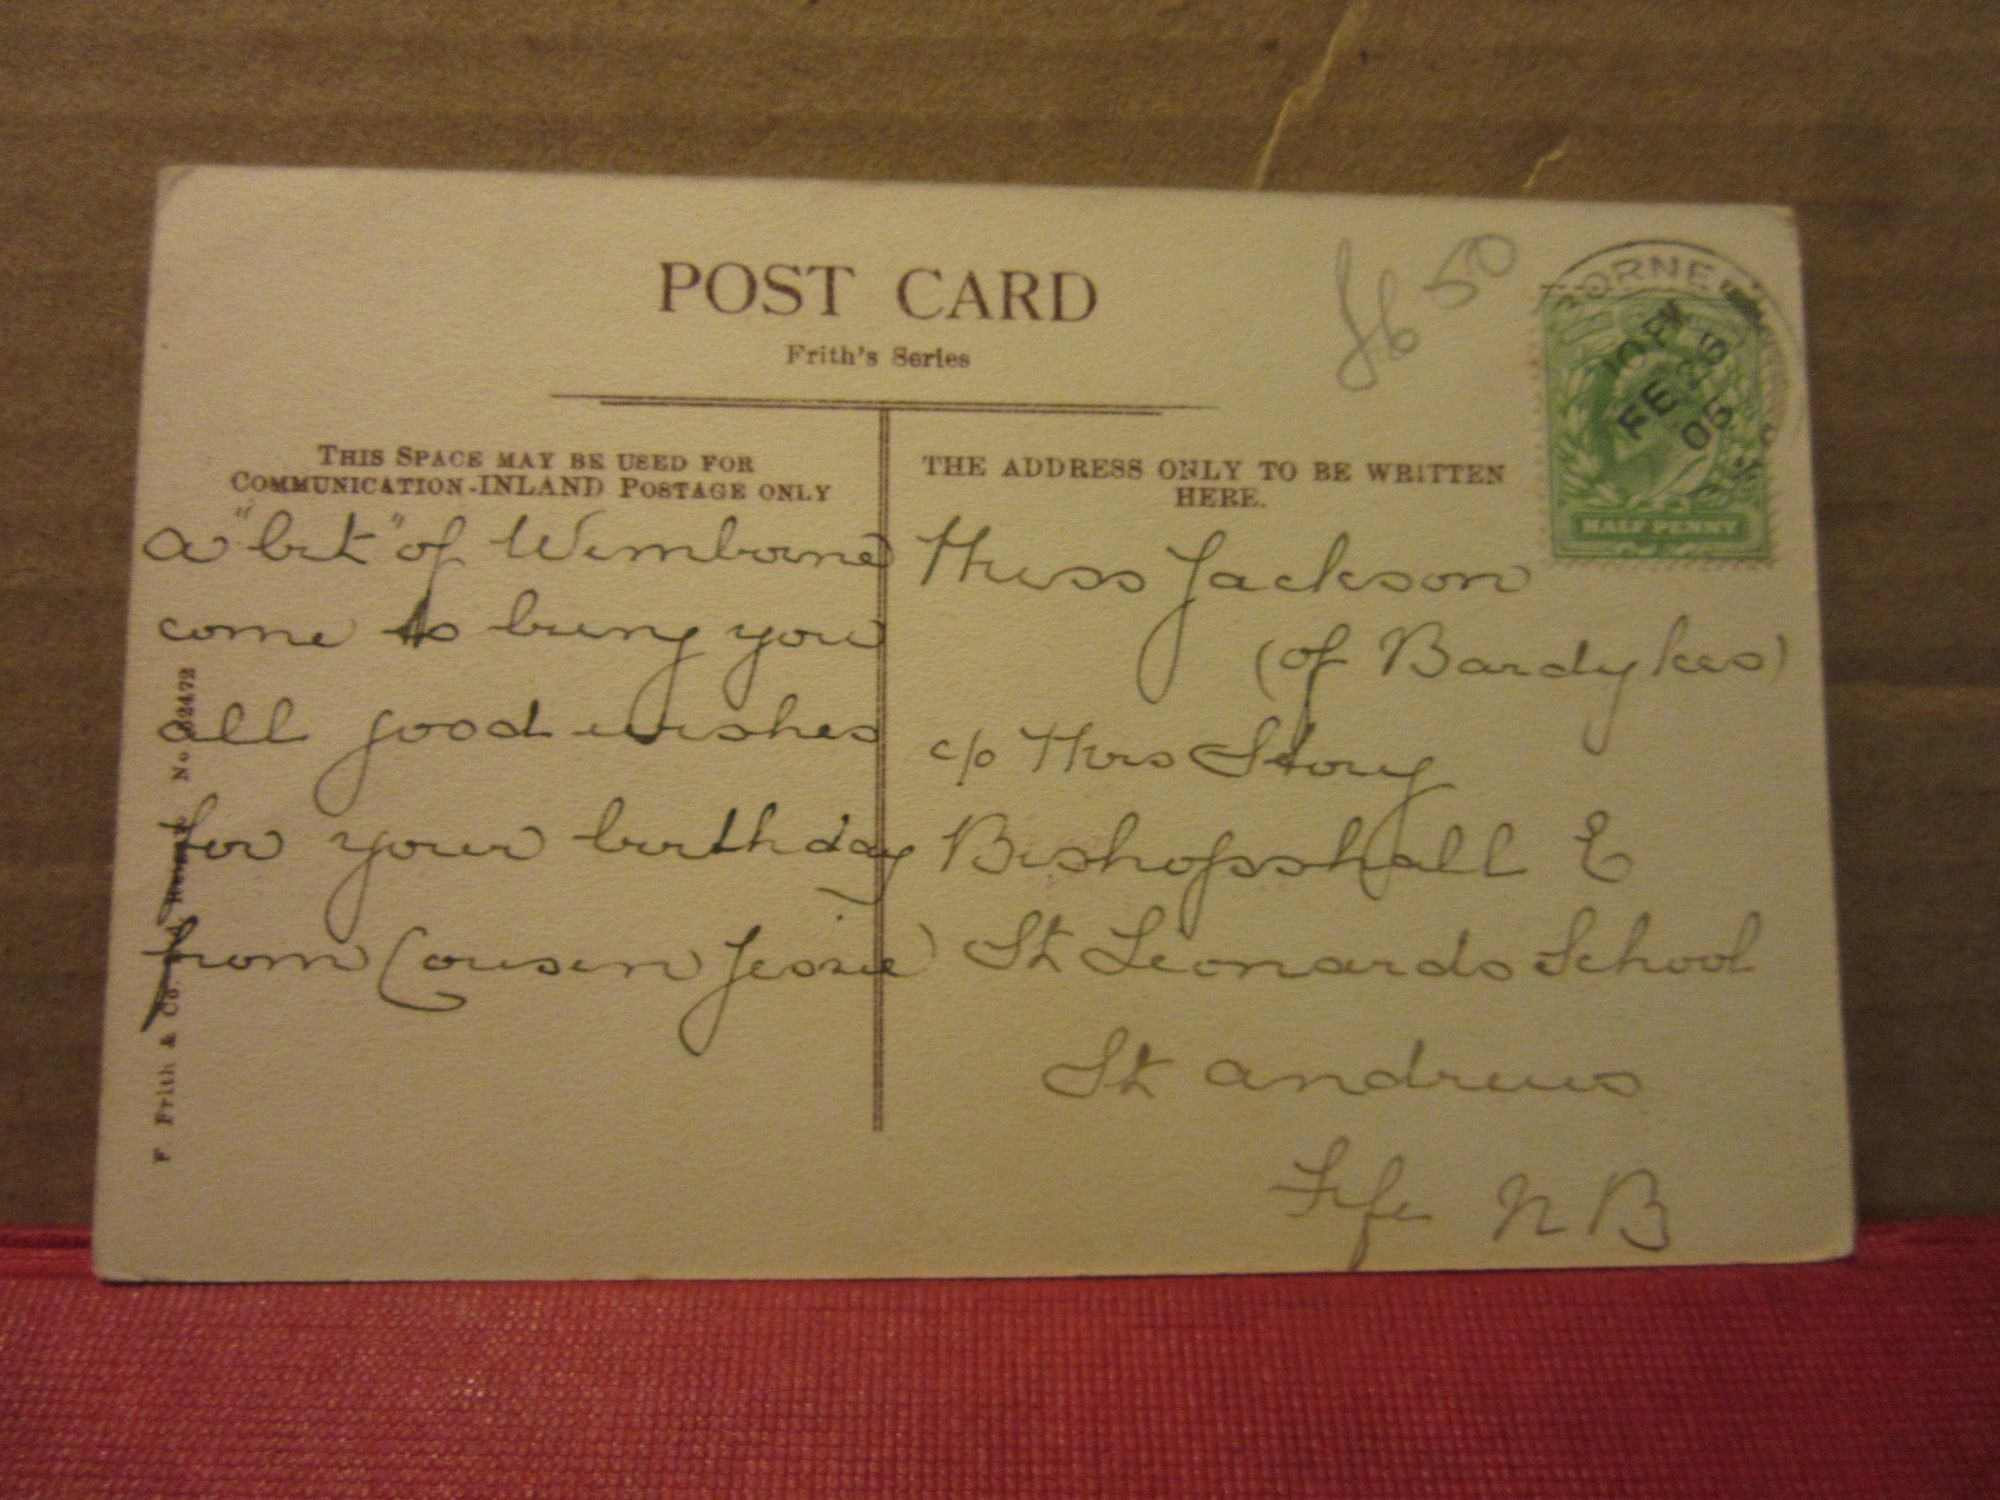 POST CARD
Frith's Series
THIS SPACE MAY BE USED FOR
COMMUNICATION-INLAND POSTAGE ONLY
a "bit" of Wimborne
come to bring you
all good wishes
for your birthday
from Cousin Jessie
THE ADDRESS ONLY TO BE WRITTEN
HERE.
Miss Jackson
(of Bardykes)
c/o Mrs Story
Bishopshall E
St Leonards School
St Andrews
Fife NB
50
BORNE
10 PM
FE 25
05
HALF PENNY
F. Frith & Co. Ltd., Reigate. No. 52472